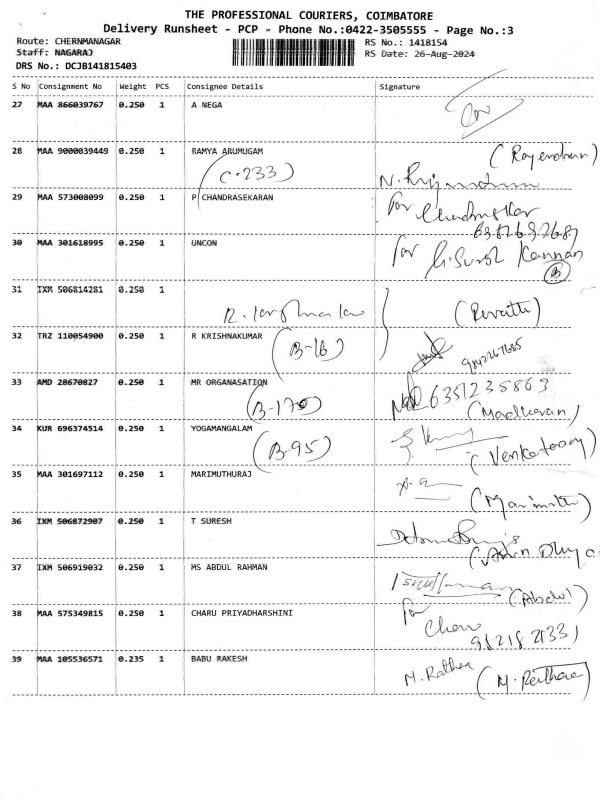 THE PROFESSIONAL COURIERS, COIMBATORE
Delivery Runsheet - PCP - Phone No.:0422-3505555 - Page No.:3
Route: CHERNMANAGAR RS No.: 1418154
Staff: NAGARAJ RS Date: 26-Aug-2024
DRS No.: DCJB141815403
S No Consignment No Weight PCS Consignee Details Signature
27 MAA 866039767 0.250 1 A NEGA
28 MAA 9000039449 0.250 1 RAMYA ARUMUGAM (Rajendran)
(C-233)
29 MAA 573008099 0.250 1 P CHANDRASEKARAN For
30 MAA 301618995 0.250 1 UNCON For G. Suresh Kannan
(B)
31 IXM 506814281 0.250 1 (Revathi)
32 TRZ 110054900 0.250 1 R KRISHNAKUMAR
(B-16) 9842267685
33 AMD 28670827 0.250 1 MR ORGANASATION 6351235863
(B-170) (Madhavan)
34 KUR 696374514 0.250 1 YOGAMANGALAM
(B-95) (Venkatasay)
35 MAA 301697112 0.250 1 MARIMUTHURAJ
(Marimuthu)
36 IXM 506872907 0.250 1 T SURESH
37 IXM 506919032 0.250 1 MS ABDUL RAHMAN
(Abdul)
38 MAA 575349815 0.250 1 CHARU PRIYADHARSHINI For
Charu
39 MAA 105536571 0.235 1 BABU RAKESH